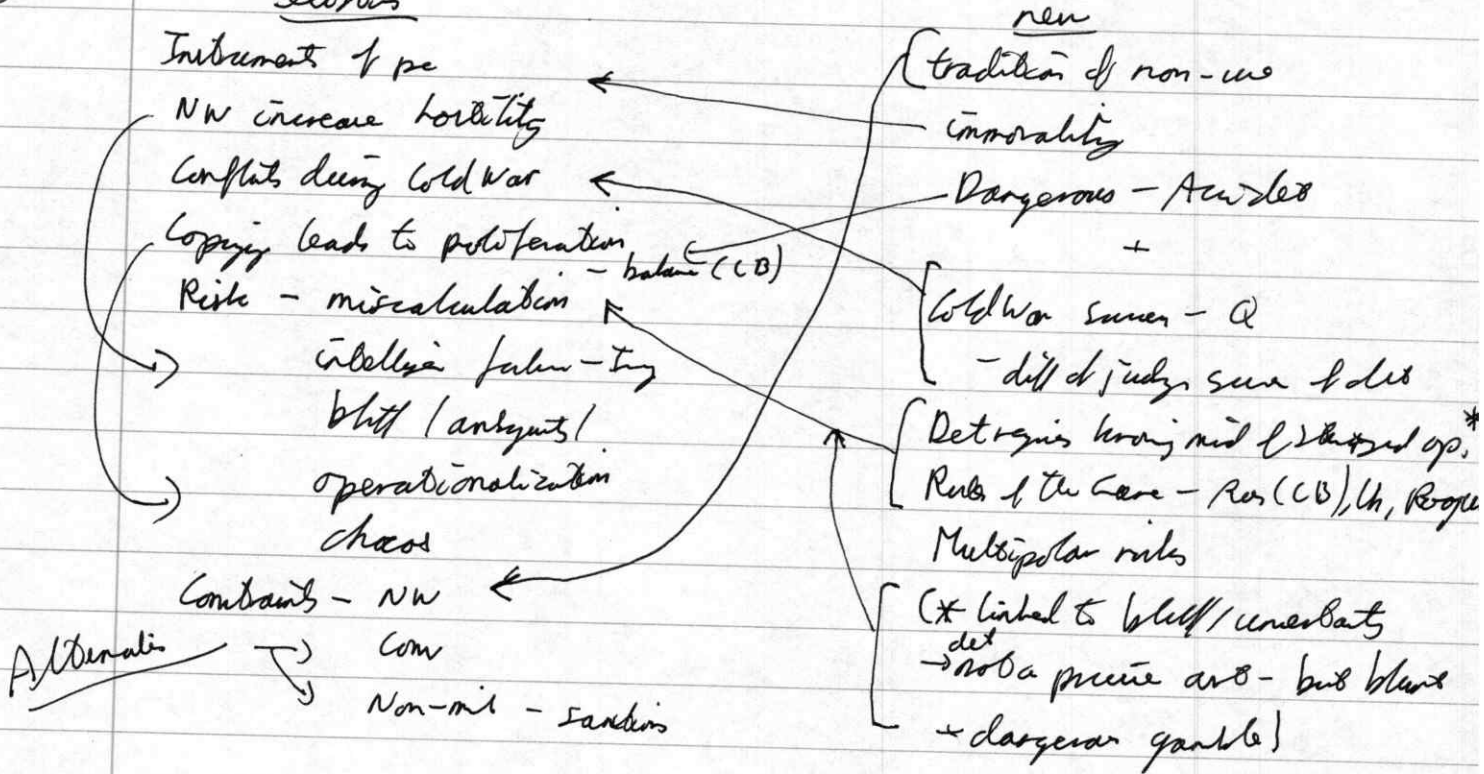 new
Instruments of pe
NW increase hostility
Conflicts during Cold War
Copying leads to proliferation
- balance (CB)
Risk - miscalculation
intelligen failure -
bluff / ambiguity /
operationalization
chaos
Constraints - NW
Alternatives
Conv
Non-mil - sanctions
tradition of non-use
immorality
Dangerous - Accidents
+
Cold War success - Q
- diff of judg success of det
Det requires knowing mind of op. *
Rules of the Game - Rus (CB), Ch, Rogue
Multipolar risks
(* linked to bluff / uncertainty
det
→ not a precise art - but blunt
+ dangerous gamble)